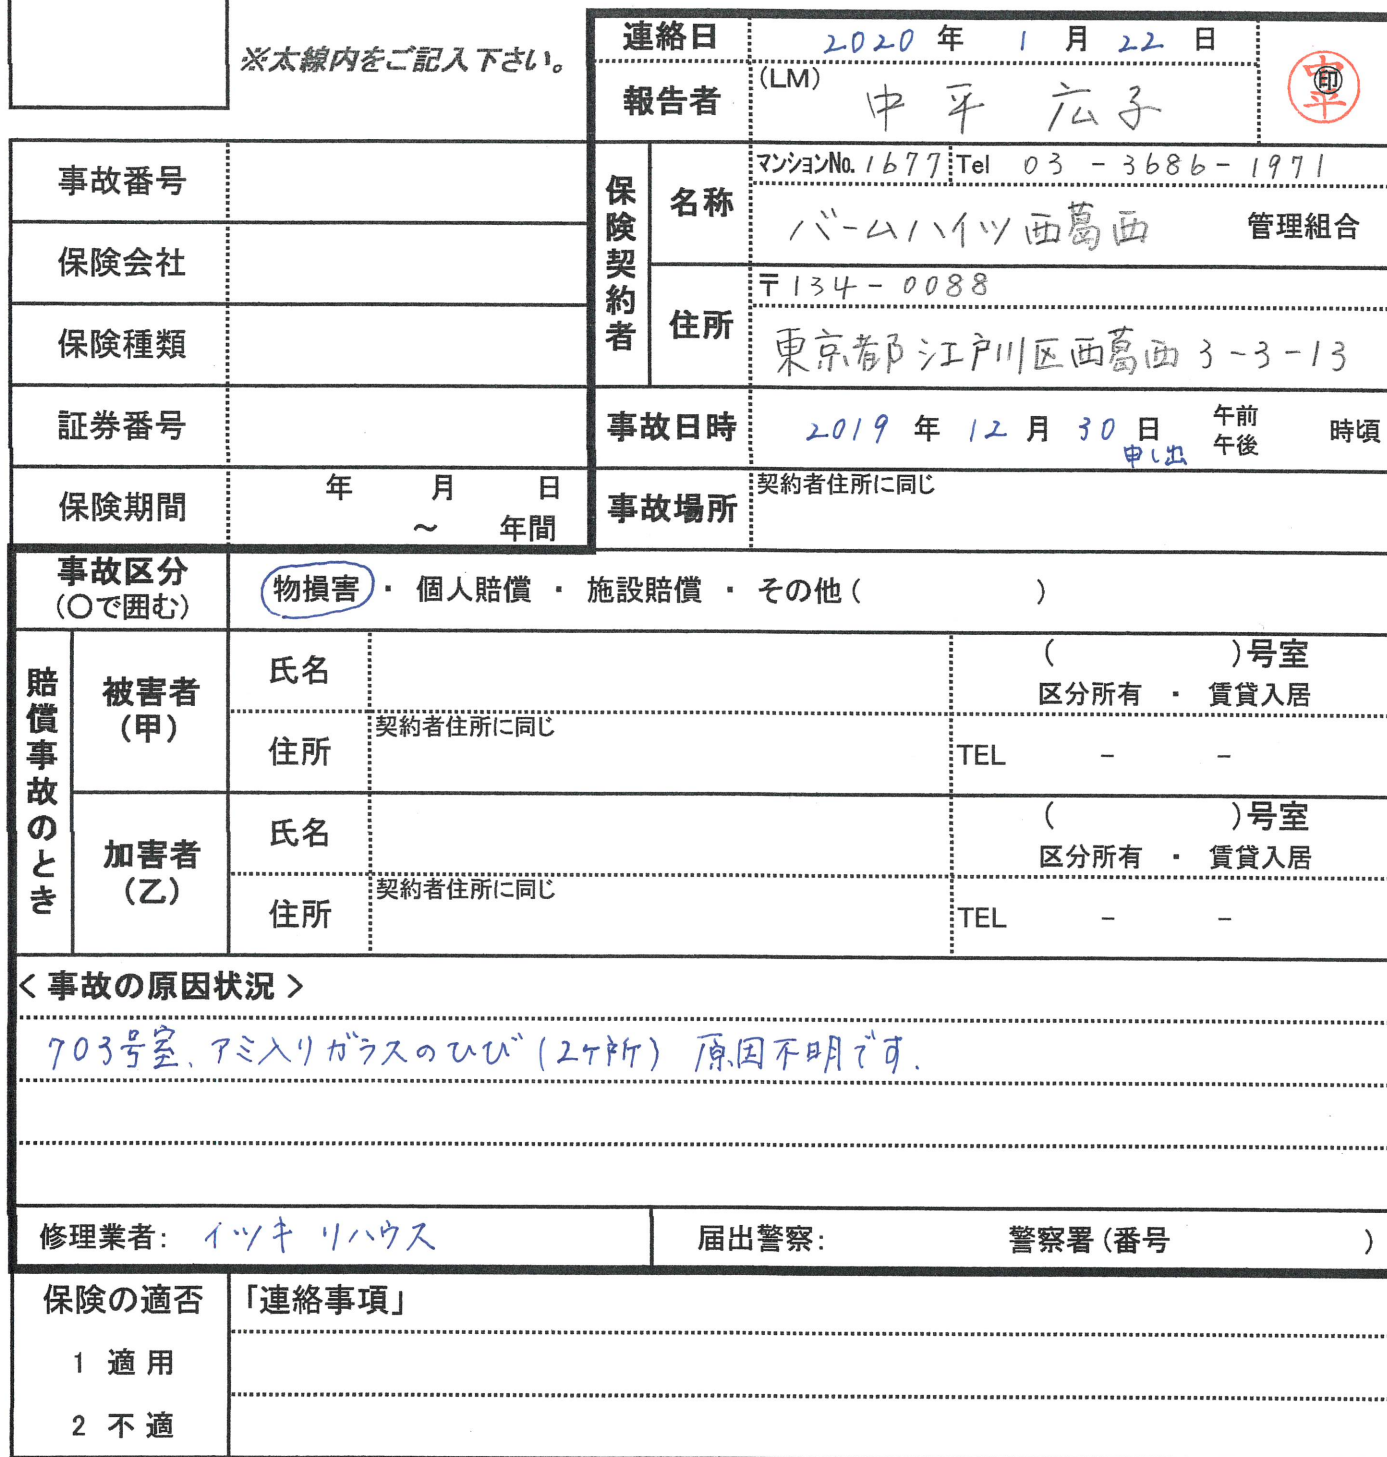 ※太線内をご記入下さい。
連絡日 2020 年 1 月 22 日
報告者 (LM) 中平 広子 ㊞ 中平
事故番号
保険会社
保険種類
証券番号
保険期間 年 月 日
～ 年間
保険契約者
名称 マンションNo. 1677 Tel 03 - 3686 - 1971
バームハイツ西葛西 管理組合
住所 〒134 - 0088
東京都江戸川区西葛西 3-3-13
事故日時 2019 年 12 月 30 日 午前 午後 時頃
申し出
事故場所 契約者住所に同じ
事故区分
(〇で囲む)
物損害 ・ 個人賠償 ・ 施設賠償 ・ その他 ( )
賠償事故のとき
被害者
(甲)
氏名 ( )号室
区分所有 ・ 賃貸入居
住所 契約者住所に同じ TEL - -
加害者
(乙)
氏名 ( )号室
区分所有 ・ 賃貸入居
住所 契約者住所に同じ TEL - -
< 事故の原因状況 >
703号室、アミ入りガラスのひび(2ヶ所) 原因不明です.
修理業者: イツキ リハウス 届出警察: 警察署 (番号 )
保険の適否 「連絡事項」
1 適 用
2 不 適